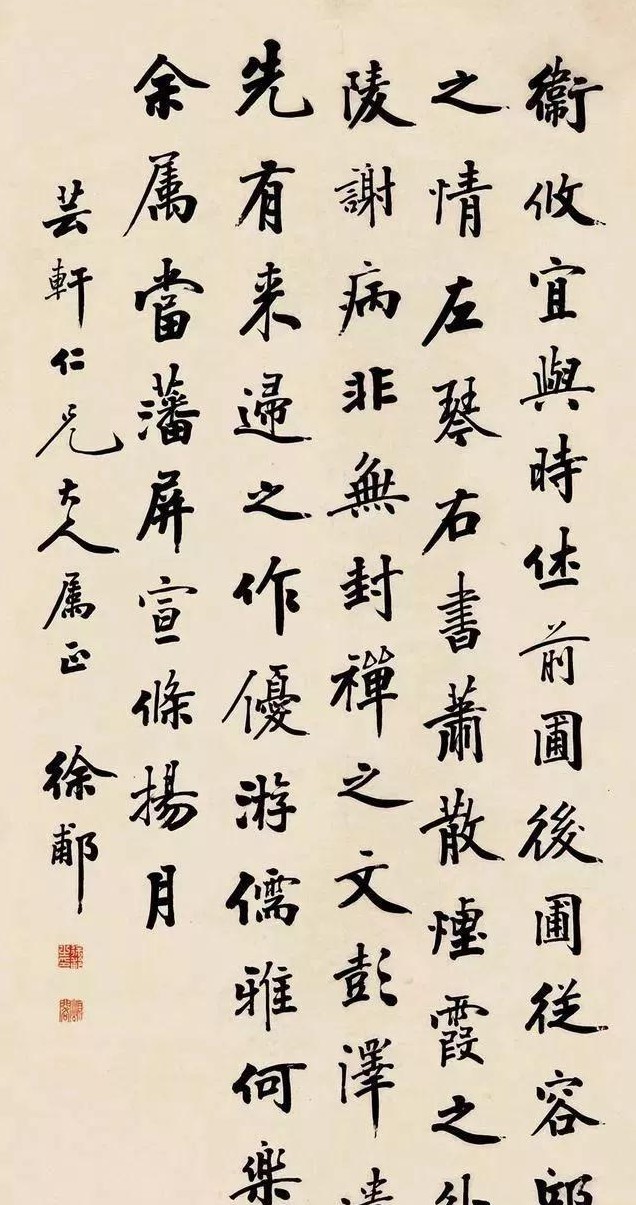 衞攸宜與時休前圃後圃従容邱
之情左琴右書蕭散煙霞之外
陵謝病非無封禪之文彭澤
先有来歸之作優游儒雅何樂
余属當藩屏宣條揚月
芸軒仁兄大人属正 徐郙